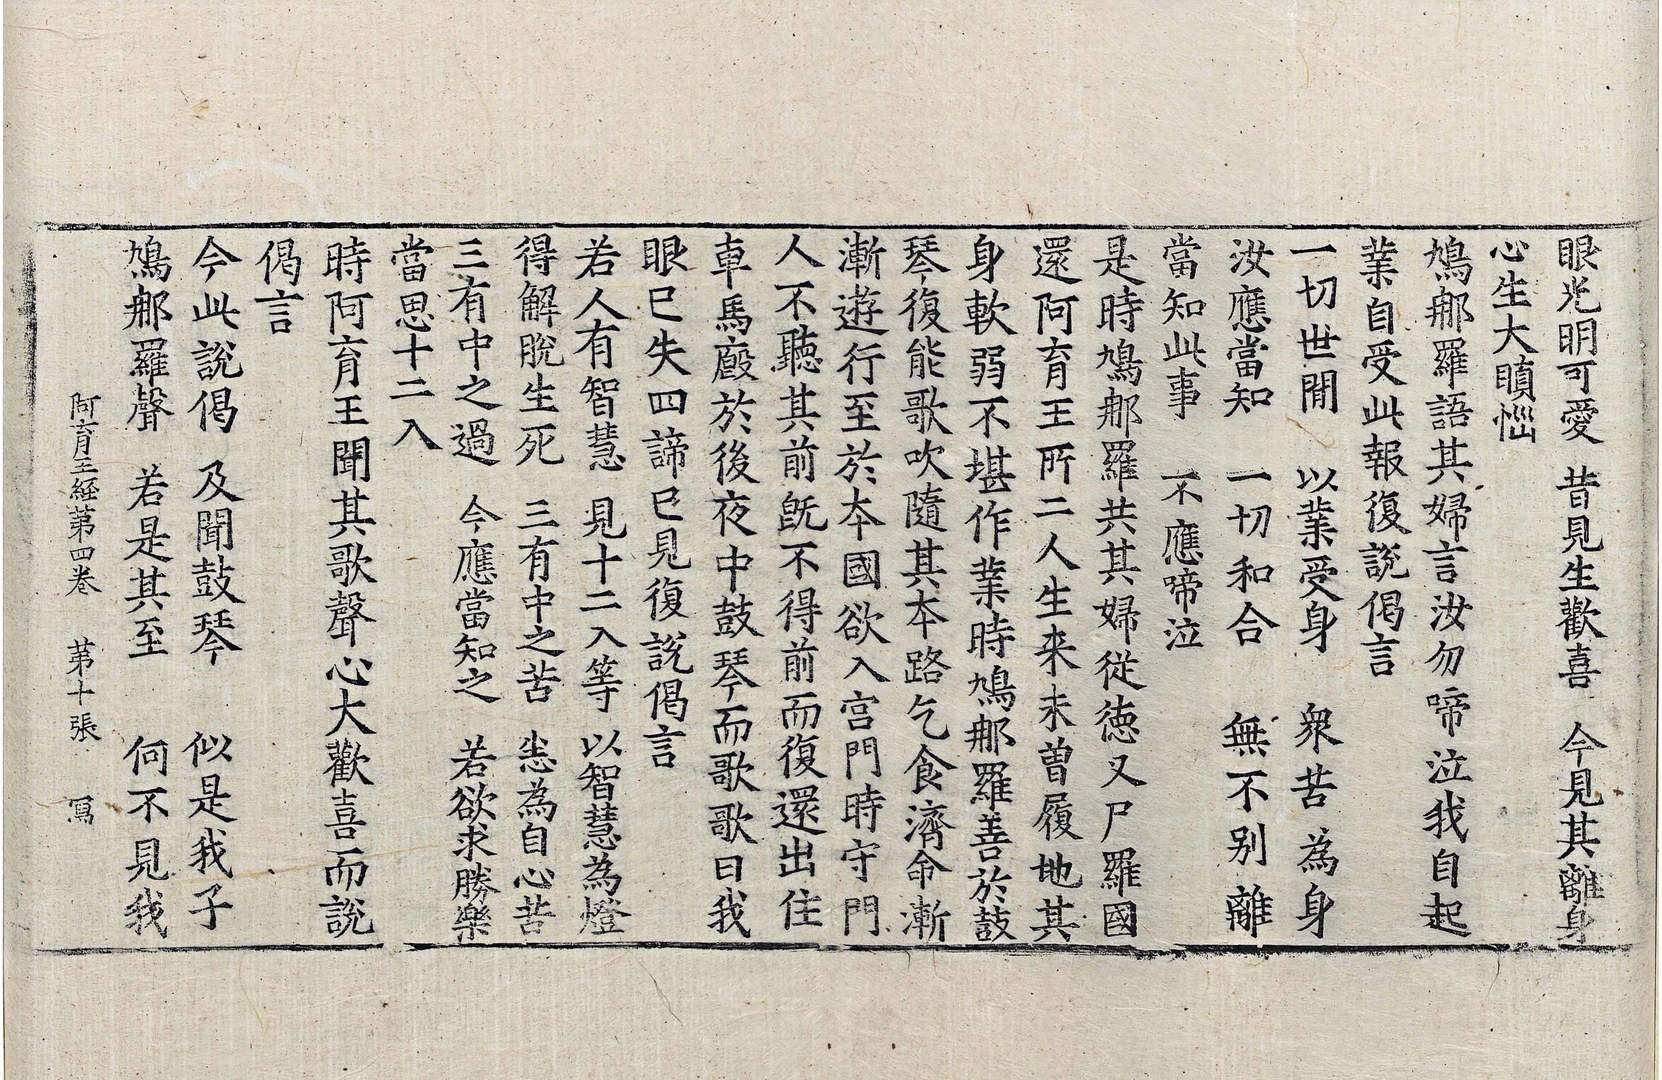 眼光明可愛 昔見生歡喜 今見其離身
心生大瞋惱
鳩𨙻羅語其婦言汝勿啼泣我自起
業自受此報復說偈言
一切世間 以業受身 衆苦為身
汝應當知 一切和合 無不別離
當知此事 不應啼泣
是時鳩𨙻羅共其婦從徳叉尸羅國
還阿育王所二人生来未曽履地其
身軟弱不堪作業時鳩𨙻羅善於鼓
琴復能歌吹隨其本路乞食濟命漸
漸遊行至於本國欲入宫門時守門
人不聽其前既不得前而復還出住
車馬廄於後夜中鼓琴而歌歌曰我
眼已失四諦已見復說偈言
若人有智慧 見十二入等 以智慧為燈
得解脫生死 三有中之苦 恙為自心苦
三有中之過 今應當知之 若欲求勝樂
當思十二入
時阿育王聞其歌聲心大歡喜而說
偈言
今此說偈 及聞鼓琴 似是我子
鳩𨙻羅聲 若是其至 何不見我
阿育王経第四巻 第十張 寫